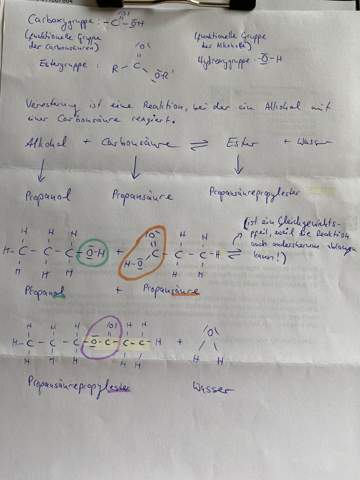 Carboxygruppe: -C-O-H
(funktionelle Gruppe der Carbonsäuren)
(funktionelle Gruppe der Alkohole)
Estergruppe: R C O-R'
Hydroxygruppe: O-H
Veresterung ist eine Reaktion, bei der ein Alkohol mit
einer Carbonsäure reagiert.
Alkohol + Carbonsäure ⇌ Ester + Wasser
Propanol Propansäure Propansäurepropylester
(ist ein Gleichgewichts-
pfeil, weil die Reaktion
auch andersherum ablaufen
kann!)
H-C-C-C-O-H + H-O C-C-C-H ⇌
Propanol + Propansäure
H-C-C-C-O-C-C-C-H + O H H
Propansäurepropylester Wasser